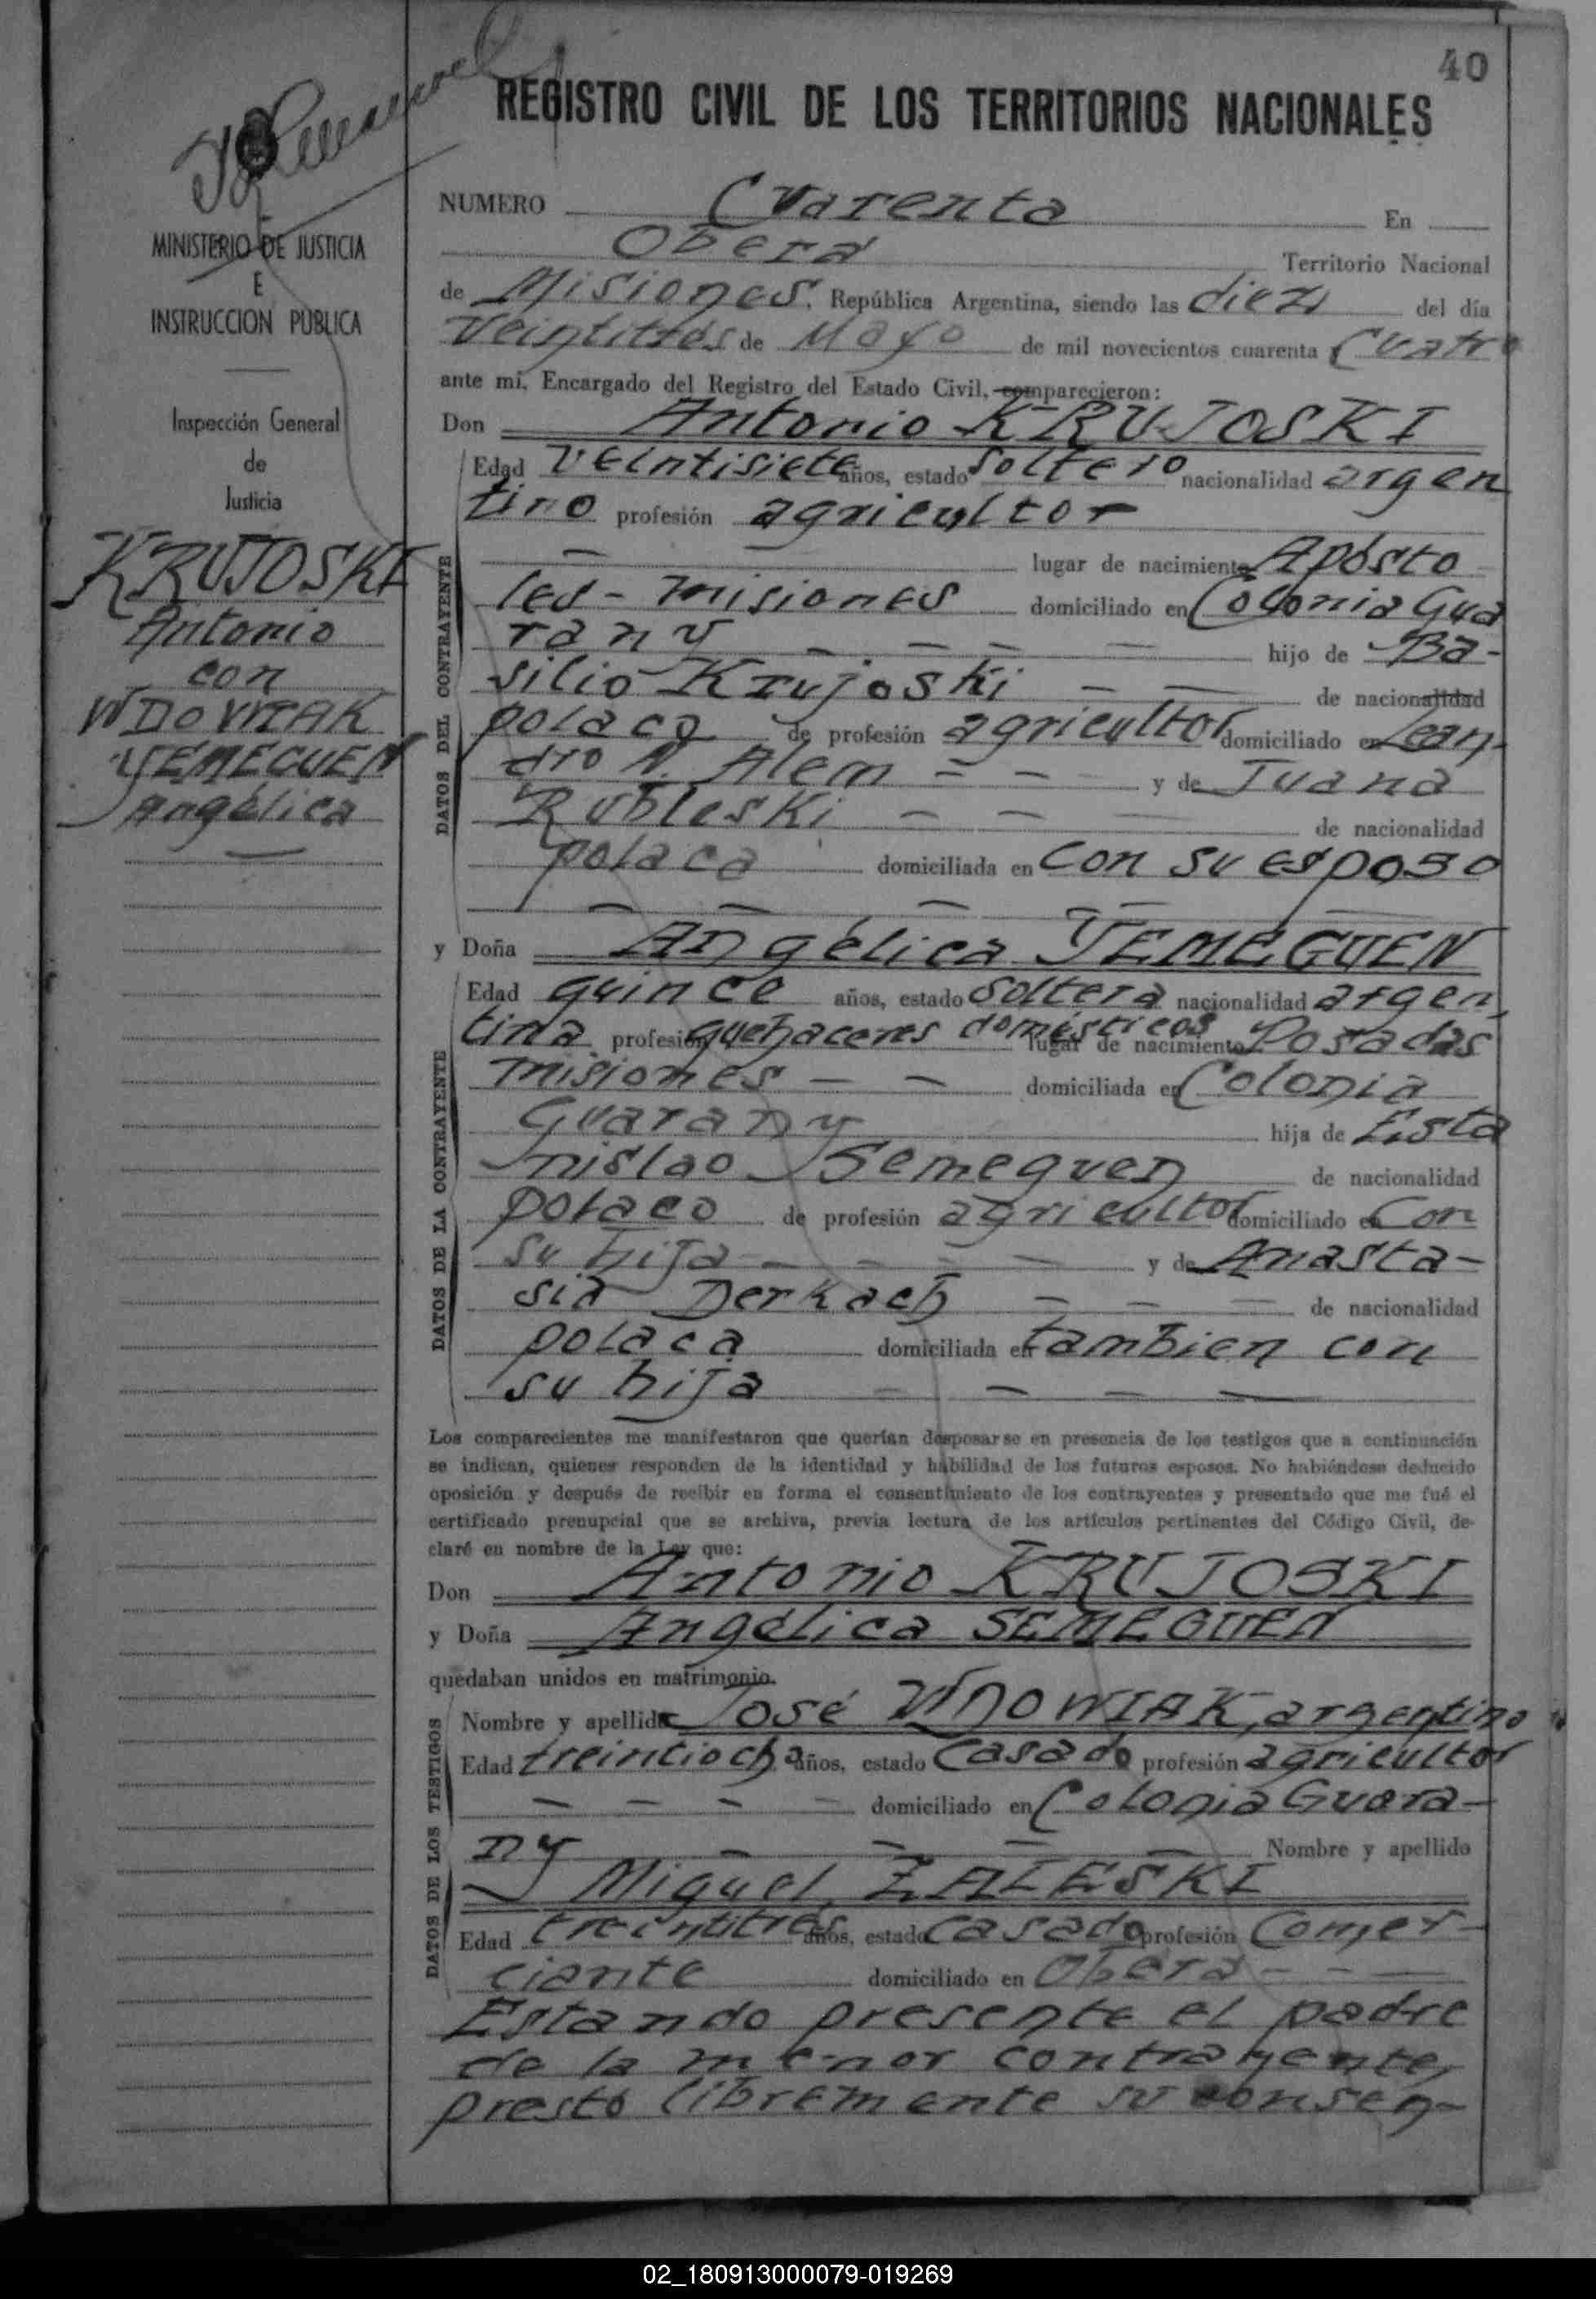 40
REGISTRO CIVIL DE LOS TERRITORIOS NACIONALES
MINISTERIO DE JUSTICIA
E
INSTRUCCION PUBLICA
Inspección General
de
Justicia
KRUJOSKI
Antonio
con
WDOWIAK
SEMEGUEN
Angélica
NUMERO Cuarenta En
Oberá Territorio Nacional
de Misiones, República Argentina, siendo las diez del día
Veintitrés de Mayo de mil novecientos cuarenta Cuatro
ante mí, Encargado del Registro del Estado Civil, comparecieron:
Don Antonio KRUJOSKI
DATOS DEL CONTRAYENTE
Edad Veintisiete años, estado Soltero nacionalidad argen
tino profesión agricultor
lugar de nacimiento Aposto
les - Misiones domiciliado en Colonia Gua
rany hijo de Ba-
silio Krujoski de nacionalidad
polaco de profesión agricultor domiciliado en Lean-
dro N. Alem y de Juana
Rubleski de nacionalidad
polaca domiciliada en con su esposo
y Doña Angélica SEMEGUEN
DATOS DE LA CONTRAYENTE
Edad quince años, estado Soltera nacionalidad argen
tina profesión quehaceres domésticos lugar de nacimiento Posadas
misiones domiciliada en Colonia
Guarany hija de Esta
nislao Semeguen de nacionalidad
polaco de profesión agricultor domiciliado en Con
su hija y de Anasta-
sia Derkach de nacionalidad
polaca domiciliada en tambien con
su hija
Los comparecientes me manifestaron que querían desposarse en presencia de los testigos que a continuación
se indican, quienes responden de la identidad y habilidad de los futuros esposos. No habiéndose deducido
oposición y después de recibir en forma el consentimiento de los contrayentes y presentado que me fué el
certificado prenupcial que se archiva, previa lectura de los artículos pertinentes del Código Civil, de-
claré en nombre de la Ley que:
Don Antonio KRUJOSKI
y Doña Angélica SEMEGUEN
quedaban unidos en matrimonio.
DATOS DE LOS TESTIGOS
Nombre y apellido José WDOWIAK, argentino
Edad treintiocho años, estado Casado profesión agricultor
domiciliado en Colonia Guara-
ny Nombre y apellido
Miguel ZALESKI
Edad treintitrés años, estado Casado profesión Comer-
ciante domiciliado en Oberá
Estando presente el padre
de la menor contrayente,
prestó libremente su consen-
02_180913000079-019269